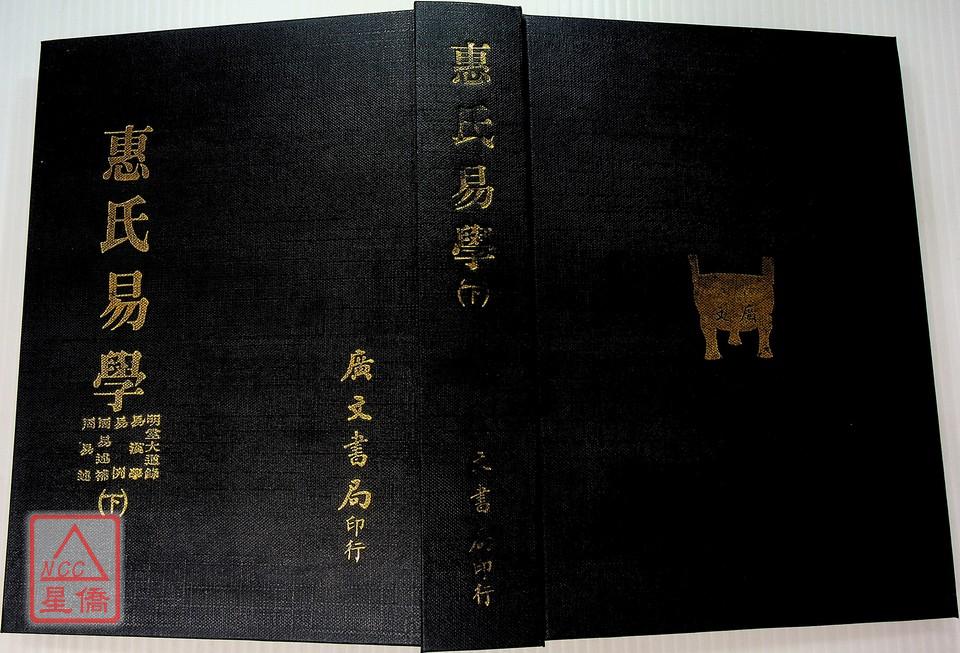 惠氏易學
明堂大道錄
易漢學
易例
周易述補
周易述
(下)
廣文書局印行
惠氏易學(下)
文書局印行
廣文
NCC
星僑